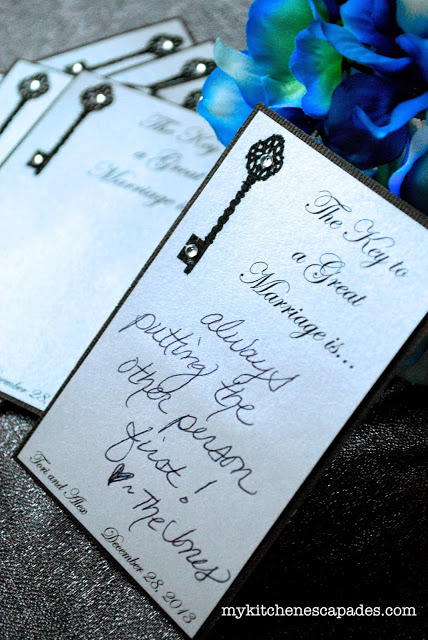 The Key to
a Great
Marriage is...
always
putting the
other person
first!
♥~ The Jones
Tori and Alex
December 28, 2013
The Key to
a Great
Marriage
ecember 28,
mykitchenescapades.com